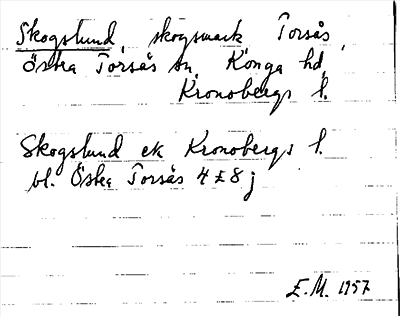 Skogslund, skogsmark Torsås,
Östra Torsås sn, Konga hd,
Kronobergs l.
Skogslund ek Kronobergs l.
bl. Östra Torsås 4 E 8 j
E.M. 1957